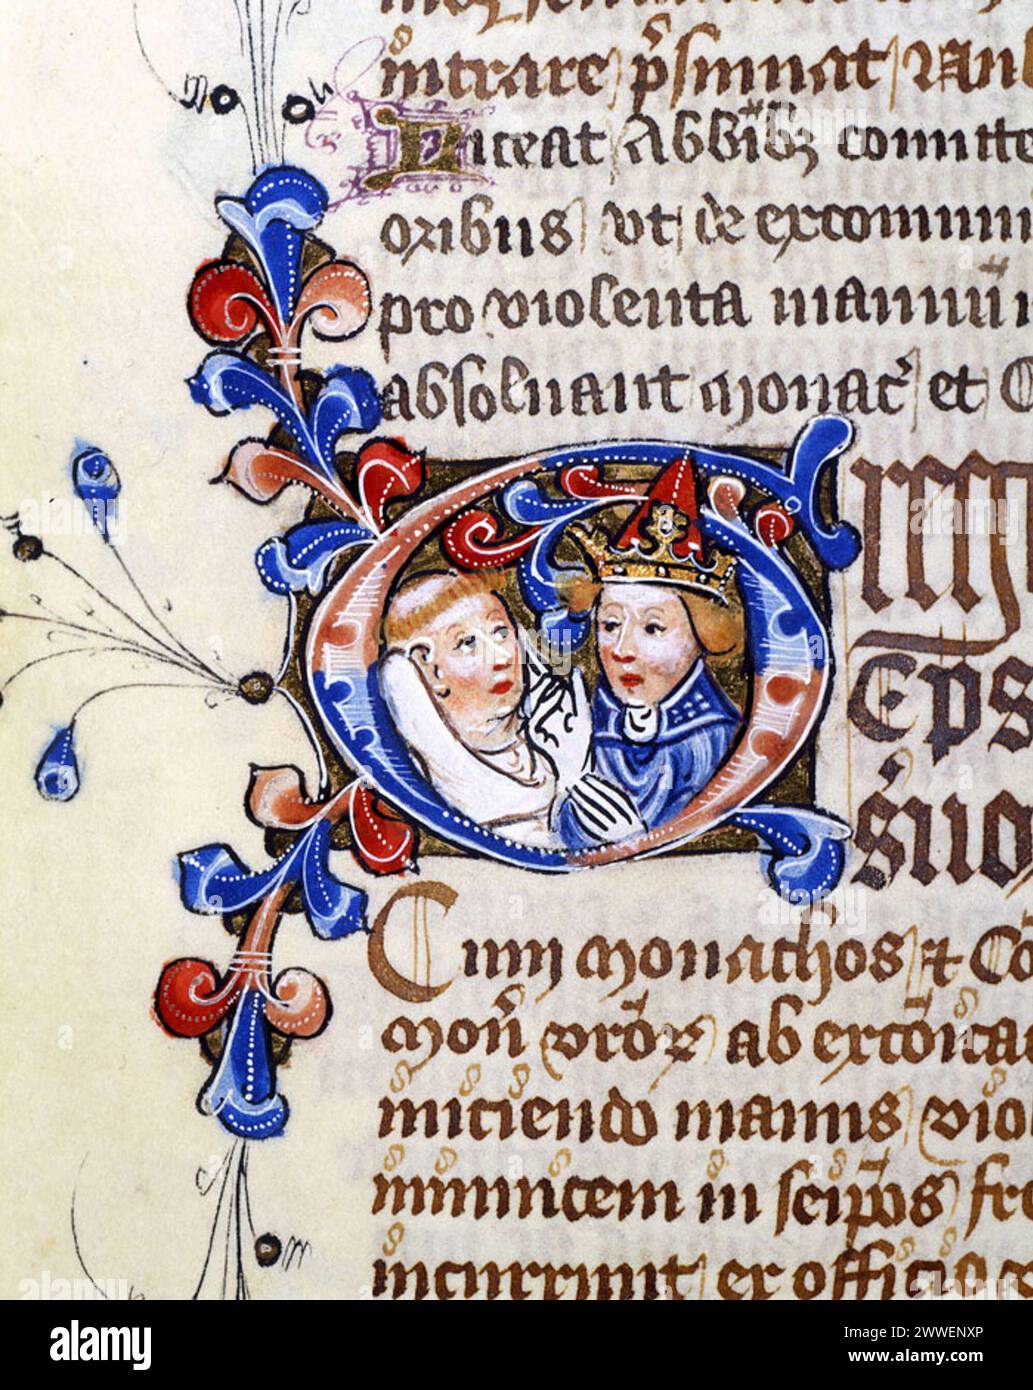 intrare p̄sumāt Rub
Liceat abbīb; comitte
oribus ut de excommun
pro violenta manuū i
absoluant monac̄ et C
Eps
suo
Cum monachos ⁊ Co
moñ vrōꝝ ab excōica
iniciendo manus viol
inuicem in seip̄os fre
incurrunt ex officio
alamy
Image ID: 2WWENXP
www.alamy.com